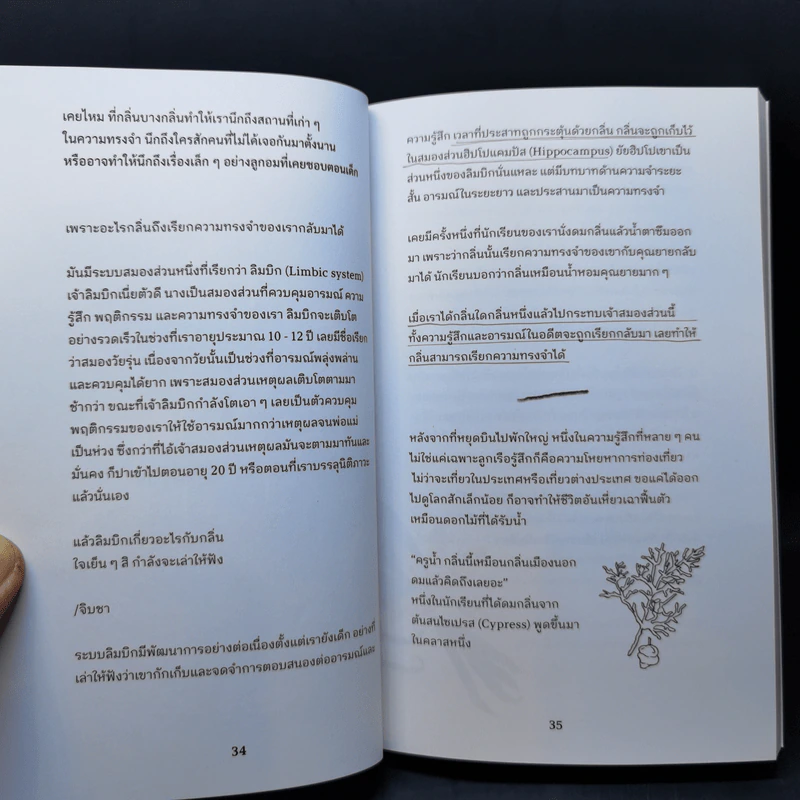 เคยไหม ที่กลิ่นบางกลิ่นทำให้เรานึกถึงสถานที่เก่า ๆ
ในความทรงจำ นึกถึงใครสักคนที่ไม่ได้เจอกันมาตั้งนาน
หรืออาจทำให้นึกถึงเรื่องเล็ก ๆ อย่างลูกอมที่เคยชอบตอนเด็ก
เพราะอะไรกลิ่นถึงเรียกความทรงจำของเรากลับมาได้
มันมีระบบสมองส่วนหนึ่งที่เรียกว่า ลิมบิก (Limbic system)
เจ้าลิมบิกเนี่ยตัวดี นางเป็นสมองส่วนที่ควบคุมอารมณ์ ความ
รู้สึก พฤติกรรม และความทรงจำของเรา ลิมบิกจะเติบโต
อย่างรวดเร็วในช่วงที่เราอายุประมาณ 10 - 12 ปี เลยมีชื่อเรียก
ว่าสมองวัยรุ่น เนื่องจากวัยนั้นเป็นช่วงที่อารมณ์พลุ่งพล่าน
และควบคุมได้ยาก เพราะสมองส่วนเหตุผลเติบโตตามมา
ช้ากว่า ขณะที่เจ้าลิมบิกกำลังโตเอา ๆ เลยเป็นตัวควบคุม
พฤติกรรมของเราให้ใช้อารมณ์มากกว่าเหตุผลจนพ่อแม่
เป็นห่วง ซึ่งกว่าที่ไอ้เจ้าสมองส่วนเหตุผลมันจะตามมาทันและ
มั่นคง ก็ปาเข้าไปตอนอายุ 20 ปี หรือตอนที่เราบรรลุนิติภาวะ
แล้วนั่นเอง
แล้วลิมบิกเกี่ยวอะไรกับกลิ่น
ใจเย็น ๆ สิ กำลังจะเล่าให้ฟัง
/จิบชา
ระบบลิมบิกมีพัฒนาการอย่างต่อเนื่องตั้งแต่เรายังเด็ก อย่างที่
เล่าให้ฟังว่าเขากักเก็บและจดจำการตอบสนองต่ออารมณ์และ
34
ความรู้สึก เวลาที่ประสาทถูกกระตุ้นด้วยกลิ่น กลิ่นจะถูกเก็บไว้
ในสมองส่วนฮิปโปแคมปัส (Hippocampus) ยัยฮิปโปเขาเป็น
ส่วนหนึ่งของลิมบิกนั่นแหละ แต่มีบทบาทด้านความจำระยะ
สั้น อารมณ์ในระยะยาว และประสานมาเป็นความทรงจำ
เคยมีครั้งหนึ่งที่นักเรียนของเรานั่งดมกลิ่นแล้วน้ำตาซึมออก
มา เพราะว่ากลิ่นนั้นเรียกความทรงจำของเขากับคุณยายกลับ
มาได้ นักเรียนบอกว่ากลิ่นเหมือนน้ำหอมคุณยายมาก ๆ
เมื่อเราได้กลิ่นใดกลิ่นหนึ่งแล้วไปกระทบเจ้าสมองส่วนนี้
ทั้งความรู้สึกและอารมณ์ในอดีตจะถูกเรียกกลับมา เลยทำให้
กลิ่นสามารถเรียกความทรงจำได้
หลังจากที่หยุดบินไปพักใหญ่ หนึ่งในความรู้สึกที่หลาย ๆ คน
ไม่ใช่แค่เฉพาะลูกเรือรู้สึกก็คือความโหยหาการท่องเที่ยว
ไม่ว่าจะเที่ยวในประเทศหรือเที่ยวต่างประเทศ ขอแค่ได้ออก
ไปดูโลกสักเล็กน้อย ก็อาจทำให้ชีวิตอันเหี่ยวเฉาฟื้นตัว
เหมือนดอกไม้ที่ได้รับน้ำ
“ครูน้ำ กลิ่นนี้เหมือนกลิ่นเมืองนอก
ดมแล้วคิดถึงเลยอะ”
หนึ่งในนักเรียนที่ได้ดมกลิ่นจาก
ต้นสนไซเปรส (Cypress) พูดขึ้นมา
ในคลาสหนึ่ง
35